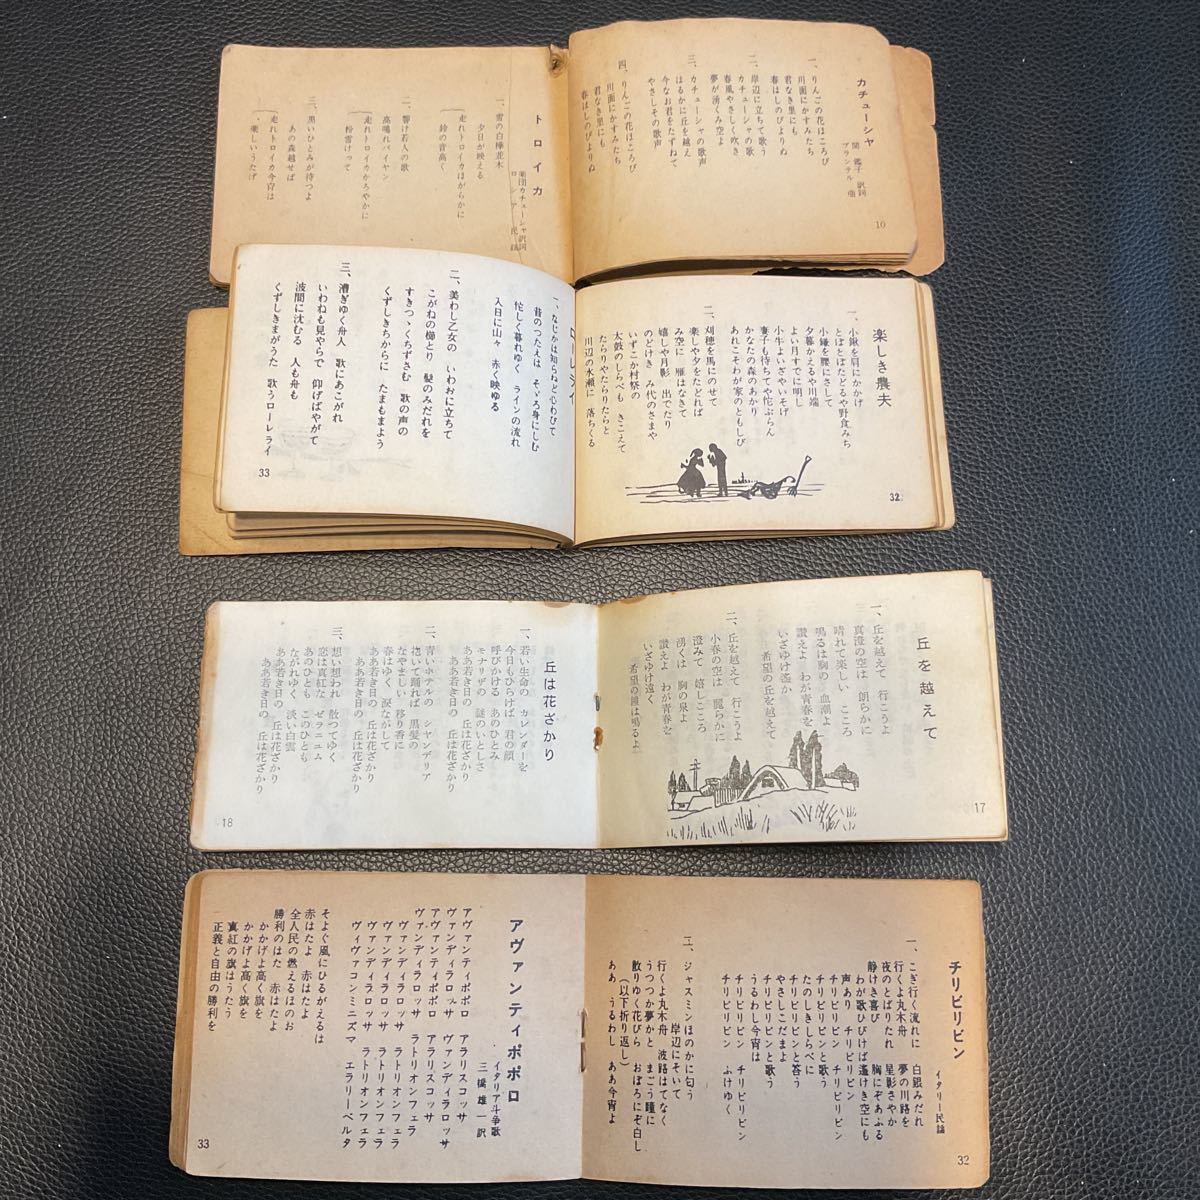 カチューシャ
関 鑑子 訳詞
ブランテル 曲
一、りんごの花ほころび
川面にかすみたち
君なき里にも
春はしのびよりぬ
二、岸辺に立ちて歌う
カチューシャの歌
春風やさしく吹き
夢が湧くみ空よ
三、カチューシャの歌声
はるかに丘を越え
今なお君をたずねて
やさしその歌声
四、りんごの花ほころび
川面にかすみたち
君なき里にも
春はしのびよりぬ
10
トロイカ
楽団カチューシャ訳詞
ロシア民謡
一、雪の白樺並木
夕日が映える
走れトロイカほがらかに
鈴の音高く
二、響け若人の歌
高鳴れバイヤン
走れトロイカかろやかに
粉雪けって
三、黒いひとみが待つよ
あの森越せば
走れトロイカ今宵は
楽しいうたげ
楽しき農夫
一、小鍬を肩にかかげ
とぼとぼたどるや野食みち
小鎌を腰にさして
夕暮かえるや川端
よい月すでに明し
小牛よいざやいそげ
妻子も待ちてや佗ぶらん
かなたの森のあかり
あれこそわが家のともしび
二、刈穂を馬にのせて
楽しや夕をたどれば
み空に 雁はなきて
嬉しや月影 出でたり
のどけき み代のさまや
いずこか村祭の
太鼓のしらべも きこえて
たらりやたらりたらと
川辺の水瀬に 落ちくる
32
ローレライ
一、なじかは知らねど心わびて
昔のつたえは そゞろ身にしむ
佗しく暮れゆく ラインの流れ
入日に山々 赤く映ゆる
二、美わし乙女の いわおに立ちて
こがねの櫛とり 髪のみだれを
すきつゝくちずさむ 歌の声の
くずしきちからに たまもまよう
三、漕ぎゆく舟人 歌にあこがれ
いわねも見やらで 仰げばやがて
波間に沈むる 人も舟も
くずしきまがうた 歌うローレライ
33
丘を越えて
一、丘を越えて 行こうよ
真澄の空は 朗らかに
晴れて楽しい こころ
鳴るは胸の 血潮よ
讃えよ わが青春を
いざゆけ遥か
希望の丘を越えて
二、丘を越えて 行こうよ
小春の空は 麗らかに
澄みて 嬉しこころ
湧くは 胸の泉よ
讃えよ わが青春を
いざゆけ遠く
希望の鐘は鳴るよ
17
丘は花ざかり
一、若い生命の カレンダーを
今日もひらけば 君の顔
呼びかける あのひとみ
モナリザの 謎のいとしさ
ああ若き日の 丘は花ざかり
ああ若き日の 丘は花ざかり
二、青いホテルの シヤンデリア
抱いて踊れば 黒髪の
なやましい 移り香に
春はゆく 涙ながして
ああ若き日の 丘は花ざかり
ああ若き日の 丘は花ざかり
三、想い想われ 散つてゆく
恋は真紅な ゼラニュム
あのひとも このひとも
ながれゆく 淡い白雲
ああ若き日の 丘は花ざかり
ああ若き日の 丘は花ざかり
18
チリビリビン
イタリー民謡
一、こぎ行く流れに 白銀みだれ
行くよ丸木舟 夢の川路を
夜のとばりたれ 星影さやか
静けき喜び 胸にぞあふる
わが歌ひびけば遙けき空にも
声あり チリビリビン
チリビリビンと歌う
チリビリビンと歌う
たのしきしらべに
チリビリビンと答う
やさしこだまよ
チリビリビンと歌う
うるわし今宵は
チリビリビン チリビリビン
チリビリビン ふけゆく
二、ジャスミンほのかに匂う
岸辺にそいて
行くよ丸木舟 波路はてなく
うつつか夢かと まごう瞳に
散りゆく花びら おぼろにぞ白し
(以下折り返し)
ああ うるわし ああ今宵よ
32
アヴァンティポポロ
イタリア斗争歌
三橋雄一訳
アヴァンティポポロ アラリスコッサ
ヴァンディラロッサ ヴァンディラロッサ
アヴァンティポポロ アラリスコッサ
ヴァンディラロッサ ラトリオンフェラ
ヴァンディラロッサ ラトリオンフェラ
ヴァンディラロッサ ラトリオンフェラ
ヴァンディラロッサ ラトリオンフェラ
ヴィヴァコンミニズマ エラリーベルタ
そよぐ風にひるがえるは
赤はたよ 赤はたよ
全人民の燃えるほのお
勝利のはた 赤はたよ
かかげよ高く旗を
かかげよ高く旗を
真紅の旗はうたう
正義と自由の勝利を
33